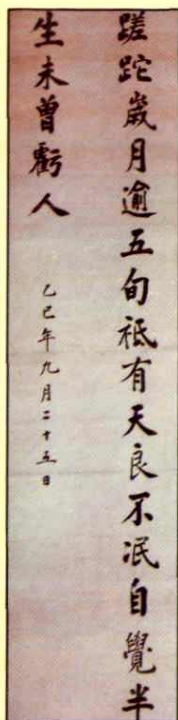 蹉跎歲月逾五旬祗有天良不泯自覺半
生未曾虧人
乙巳年九月二十五日